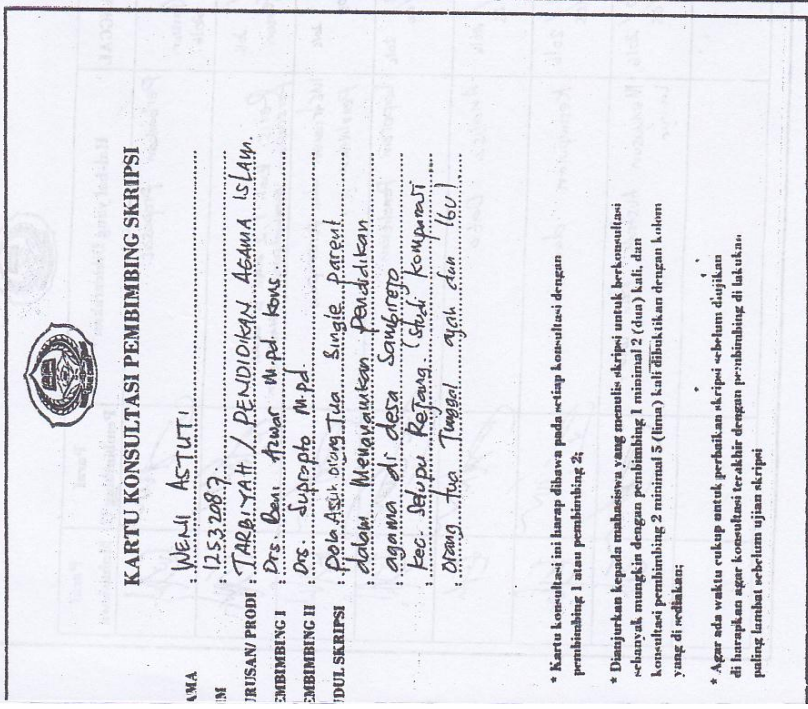 KARTU KONSULTASI PEMBIMBING SKRIPSI
AMA : WENI ASTUTI
IM : 12532087
URUSAN/ PRODI : TARBIYAH / PENDIDIKAN AGAMA ISLAM.
EMBIMBING I : Drs. Beni Azwar M.pd. Kons
EMBIMBING II : Drs Suprapto M.pd
UDUL SKRIPSI : pola Asuh orang Tua Single parent
: dalam Menanamkan pendidikan
: agama di desa Sambrejo
: kec. Selupu Rejang. (studi komparasi
: orang tua Tunggal ayah dan ibu)
* Kartu konsultasi ini harap dibawa pada setiap konsultasi dengan
pembimbing 1 atau pembimbing 2;
* Dianjurkan kepada mahasiswa yang menulis skripsi untuk berkonsultasi
sebanyak mungkin dengan pembimbing 1 minimal 2 (dua) kali, dan
konsultasi pembimbing 2 minimal 5 (lima) kali dibuktikan dengan kolom
yang di sediakan;
* Agar ada waktu cukup untuk perbaikan skripsi sebelum diujikan
di harapkan agar konsultasi terakhir dengan pembimbing di lakukan
paling lambat sebelum ujian skripsi